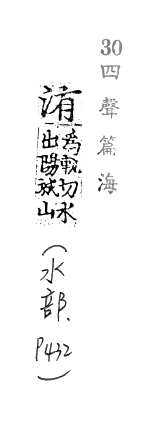 30
四聲篇海
洧
為軌切水
出陽城山
(水部. P432)